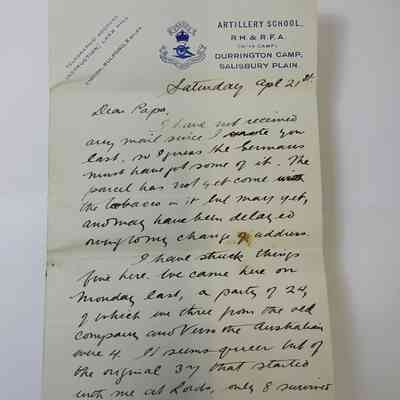 TELEGRAPHIC ADDRESS
INSTRUCTION, LARK HILL
ARTILLERY SCHOOL,
R.H. & R.F.A.
DURRINGTON CAMP,
SALISBURY PLAIN.
Saturday Apl 21st.
Dear Papa,
I have not received
any mail since I wrote you
last, so I guess the Germans
must have got some of it. The
parcel has not yet come with
the tobacco in it but may yet,
and may have been delayed
owing to my change of address.
I have struck things
fine here. We came here on
Monday last, a party of 24,
of which us three from the old
company and the Australian
were 4. It seems queer but of
the original 37 that started
with me at Lords, only 8 survived